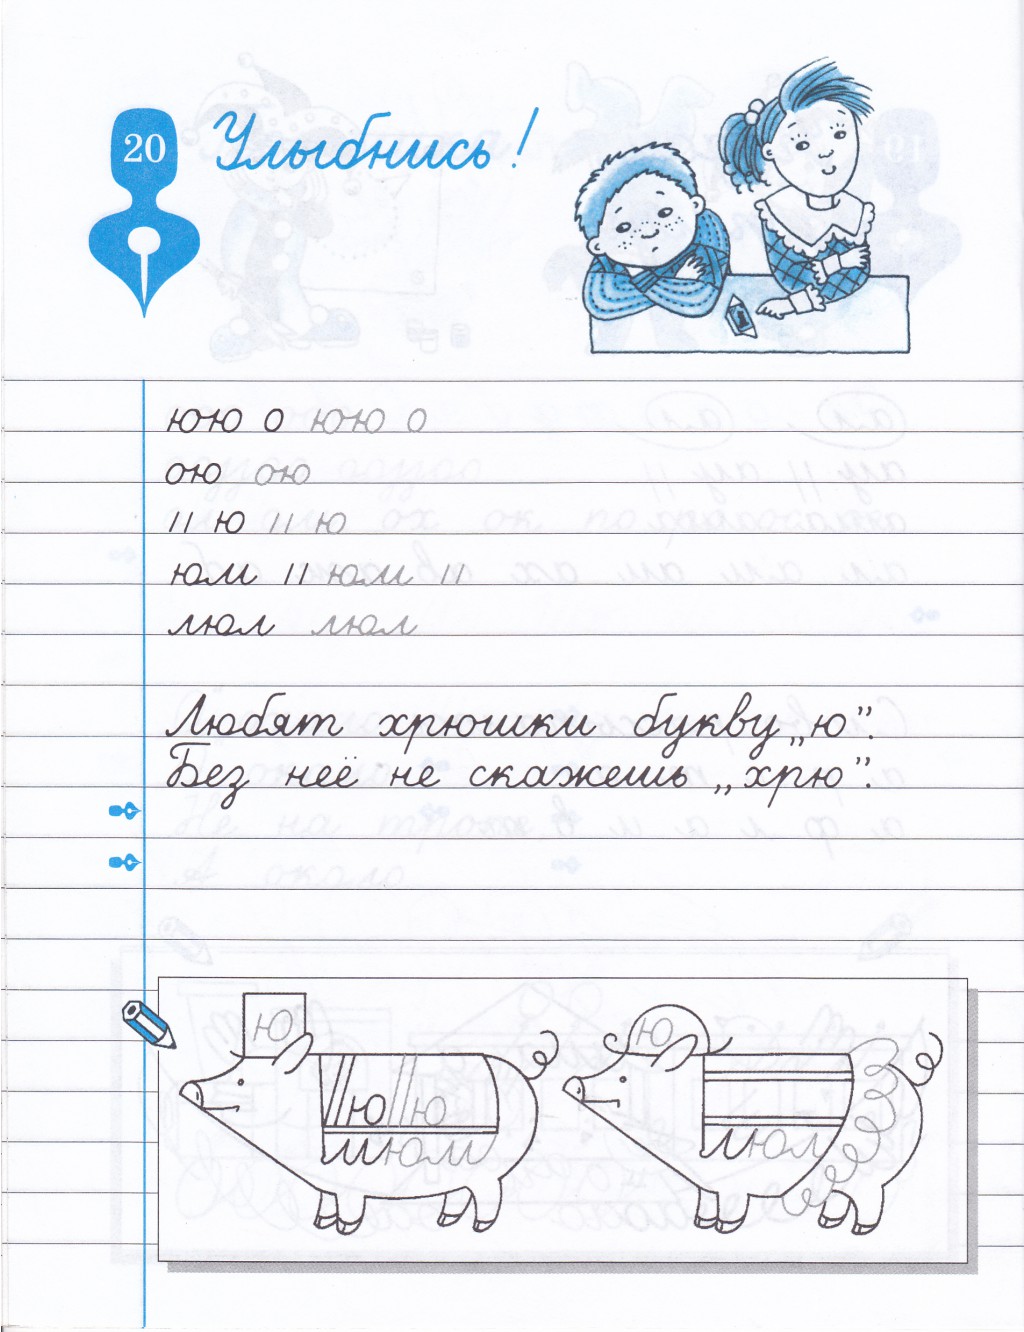 20
Улыбнись!
юю о юю о
ою ою
ıı ю ıı ю
юм ıı юм ıı
люл люл
Любят хрюшки букву „ю”.
Без неё не скажешь „хрю”.
ю ю
ıı ю ıı ю
шюм люм